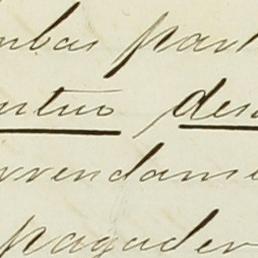 mbas part
utuo des
rrendami
pagader